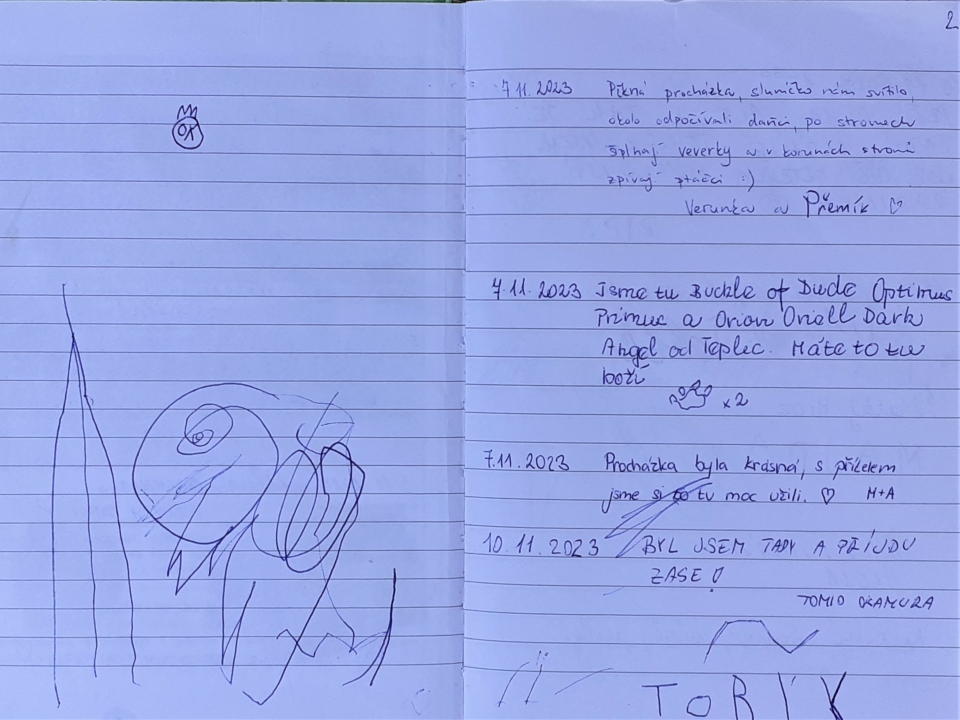 OK
2
7.11.2023 Pěkná procházka, sluníčko nám svítilo,
okolo odpočívali daňci, po stromech
šplhají veverky a v korunách stromů
zpívají ptáčci :)
Verunka a Přemík ♡
7.11.2023 Jsme tu Buckle of Dude Optimus
Primus a Orion Oriell Dark
Angel od Teplec. Máte to tu
boží
x2
7.11.2023 Procházka byla krásná, s přítelem
jsme si to tu moc užili. ♡ M+A
10.11.2023 BYL JSEM TADY A PŘÍJDU
ZASE!
TOMIO OKAMURA
TOBÍK